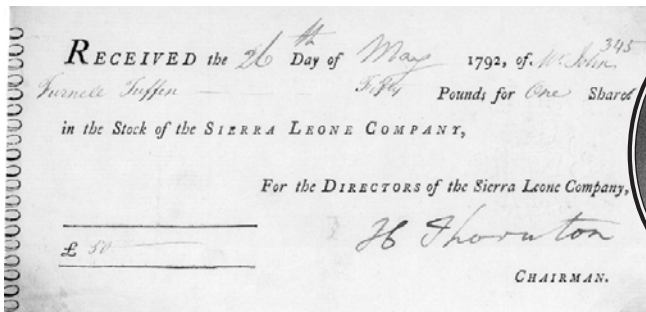 345
RECEIVED the 26th Day of May 1792, of Mr. John
Furnell Tuffen Fifty Pounds for One Share
in the Stock of the SIERRA LEONE COMPANY,
For the DIRECTORS of the Sierra Leone Company,
H Thornton
£ 50
CHAIRMAN.